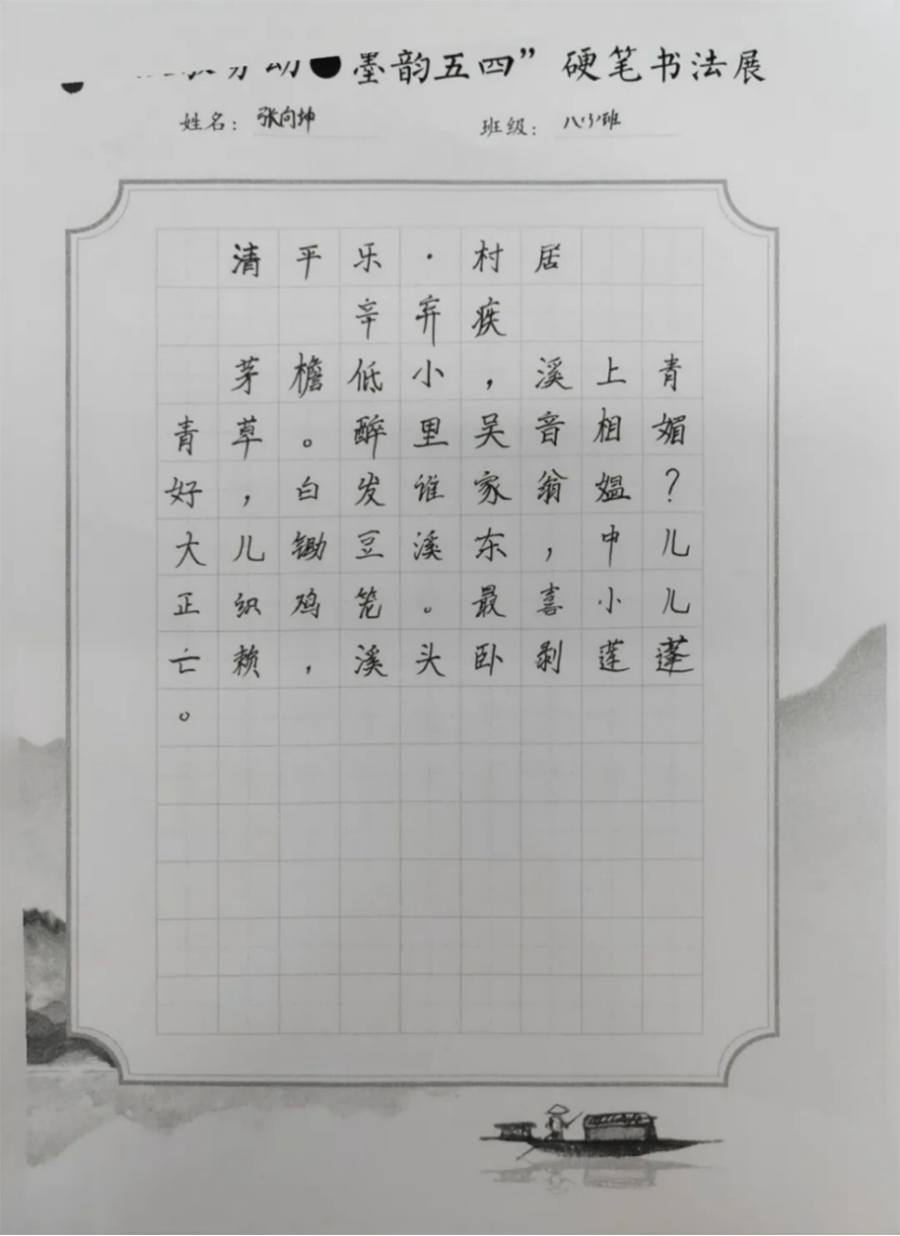 墨韵五四” 硬笔书法展
姓名： 张向坤 班级： 八(3)班
清平乐·村居
辛弃疾
茅檐低小，溪上青
青草。醉里吴音相媚
好，白发谁家翁媪？
大儿锄豆溪东，中儿
正织鸡笼。最喜小儿
亡赖，溪头卧剥莲蓬
。